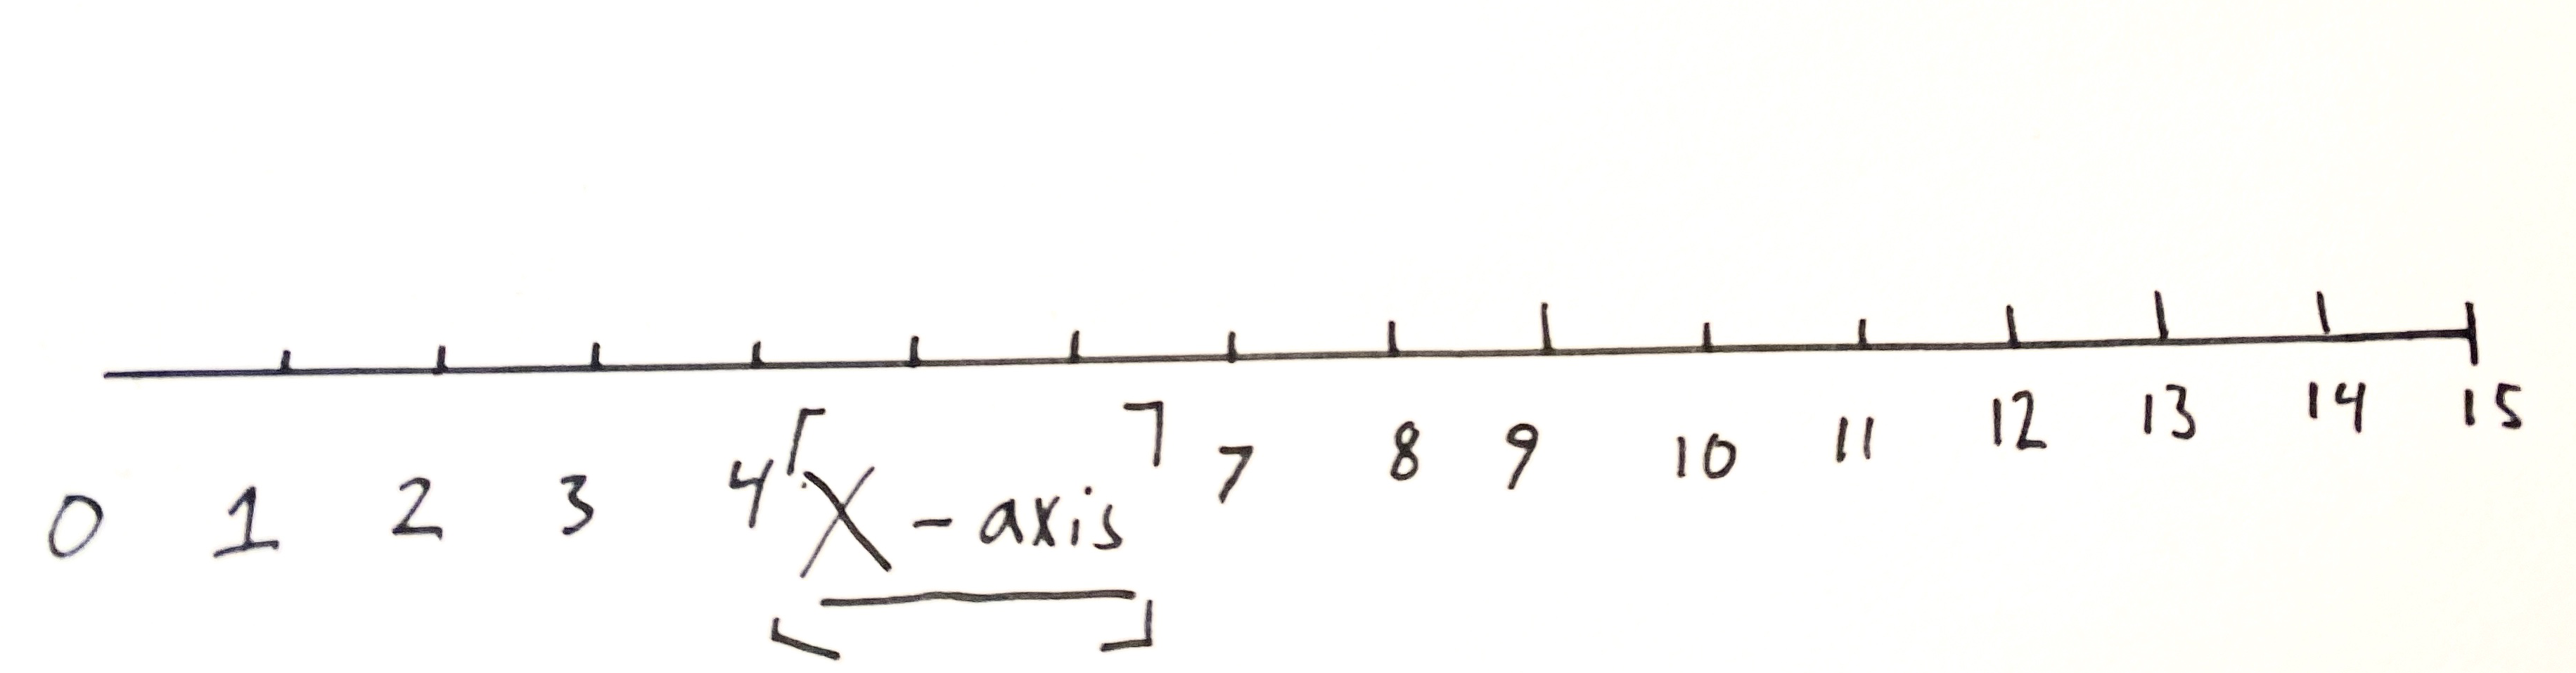 0 1 2 3 4 X-axis 7 8 9 10 11 12 13 14 15